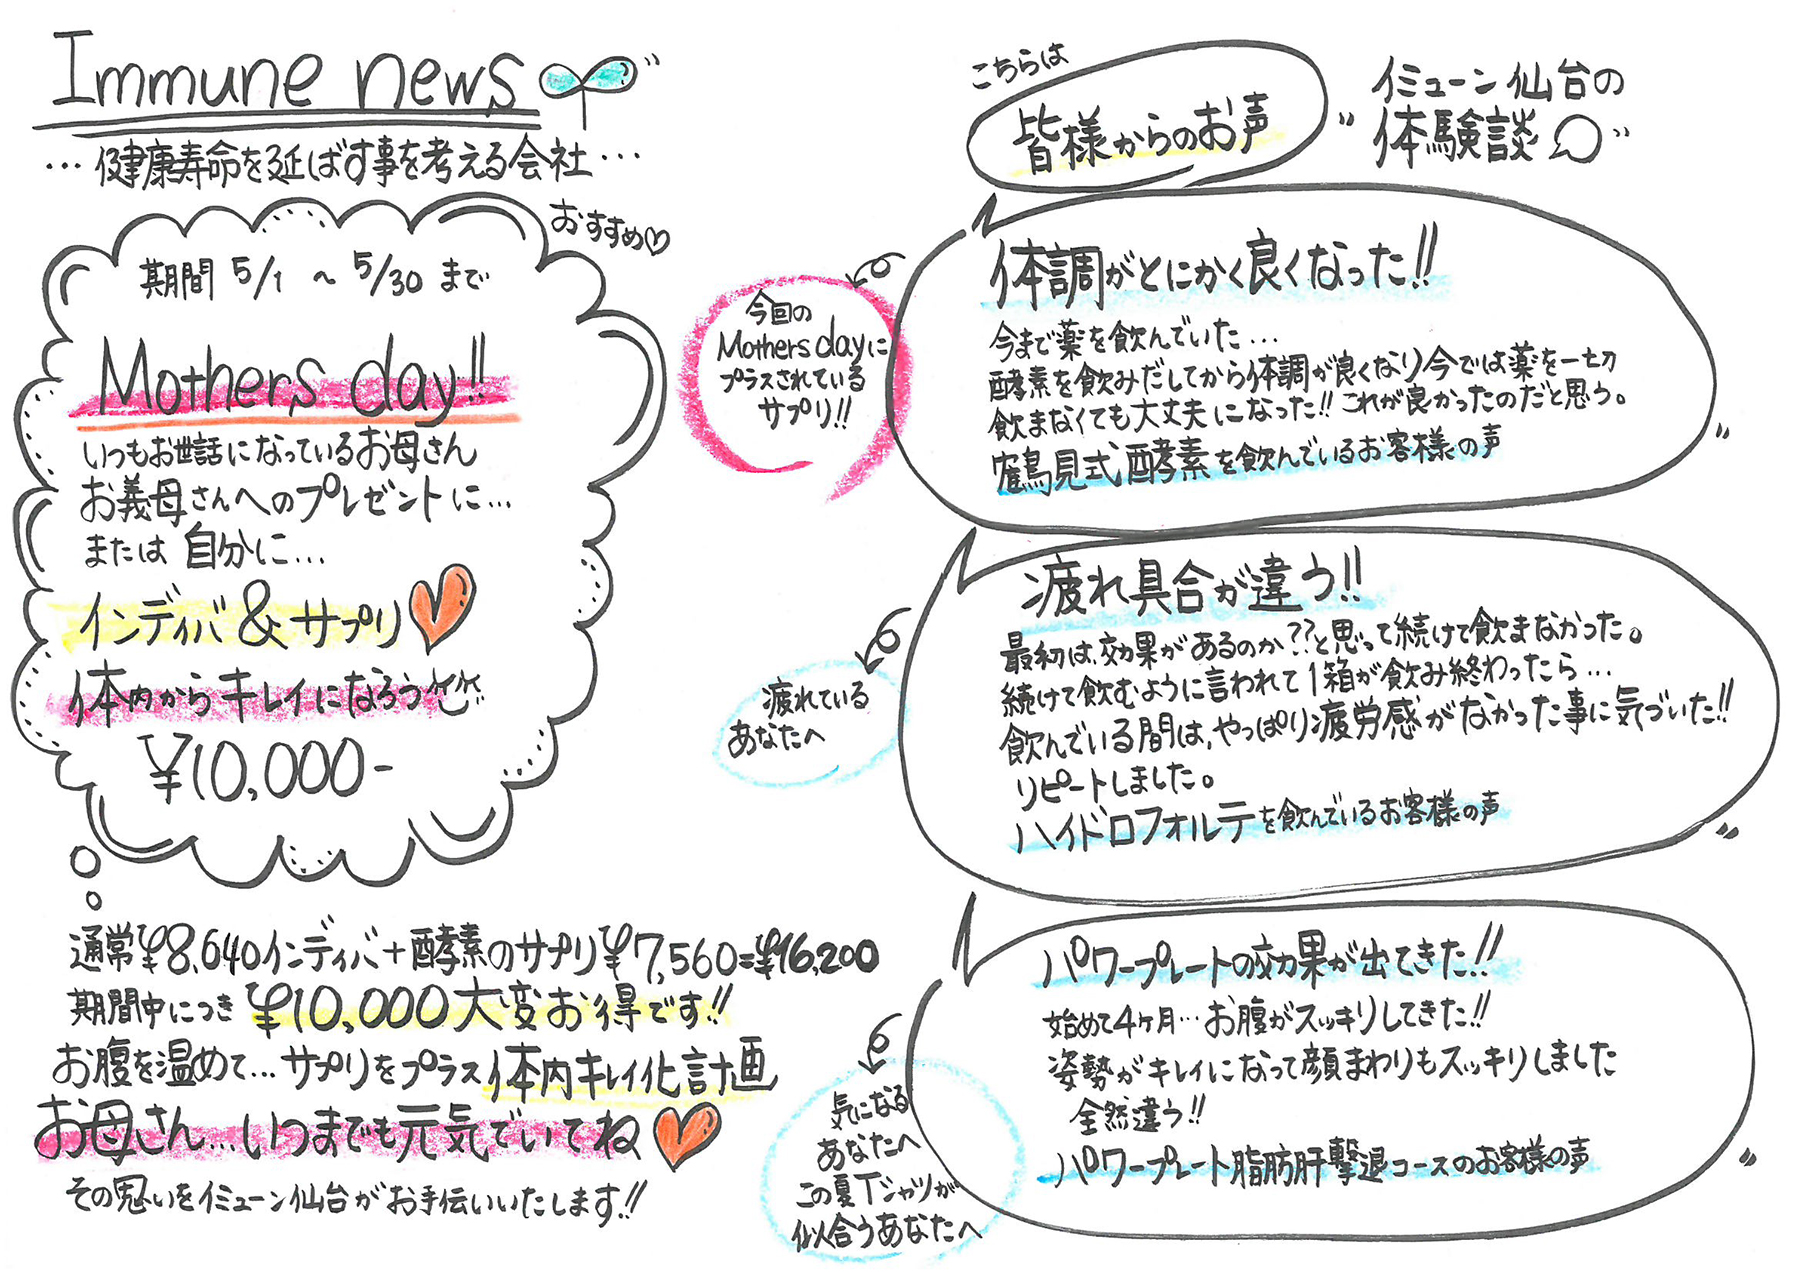 Immune news
…健康寿命を延ばす事を考える会社…
おすすめ♡
期間 5/1 〜 5/30 まで
Mothers day!!
いつもお世話になっているお母さん
お義母さんへのプレゼントに…
または 自分に…
インディバ & サプリ
体内からキレイになろう
¥10,000-
通常¥8,640インディバ+酵素のサプリ¥7,560=¥16,200
期間中につき ¥10,000大変お得です!!
お腹を温めて…サプリをプラス体内キレイ化計画
お母さん…いつまでも元気でいてね
その思いをイミューン仙台がお手伝いいたします!!
こちらは
皆様からのお声
イミューン仙台の
体験談
今回の
Mothers dayに
プラスされている
サプリ!!
体調がとにかく良くなった!!
今まで薬を飲んでいた…
酵素を飲みだしてから体調が良くなり今では薬を一切
飲まなくても大丈夫になった!! これが良かったのだと思う。
鶴見式酵素を飲んでいるお客様の声
疲れている
あなたへ
疲れ具合が違う!!
最初は、効果があるのか??と思って続けて飲まなかった。
続けて飲むように言われて1箱が飲み終わったら…
飲んでいる間は、やっぱり疲労感がなかった事に気づいた!!
リピートしました。
ハイドロフォルテを飲んでいるお客様の声
気になる
あなたへ
この夏Tシャツが
似合うあなたへ
パワープレートの効果が出てきた!!
始めて4ヶ月…お腹がスッキリしてきた!!
姿勢がキレイになって顔まわりもスッキリしました
全然違う!!
パワープレート脂肪肝撃退コースのお客様の声